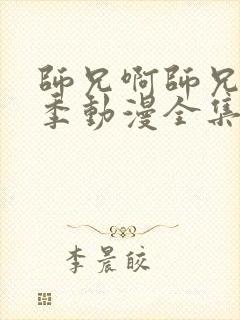 師兄啊師兄
季動漫全集
李晨皎